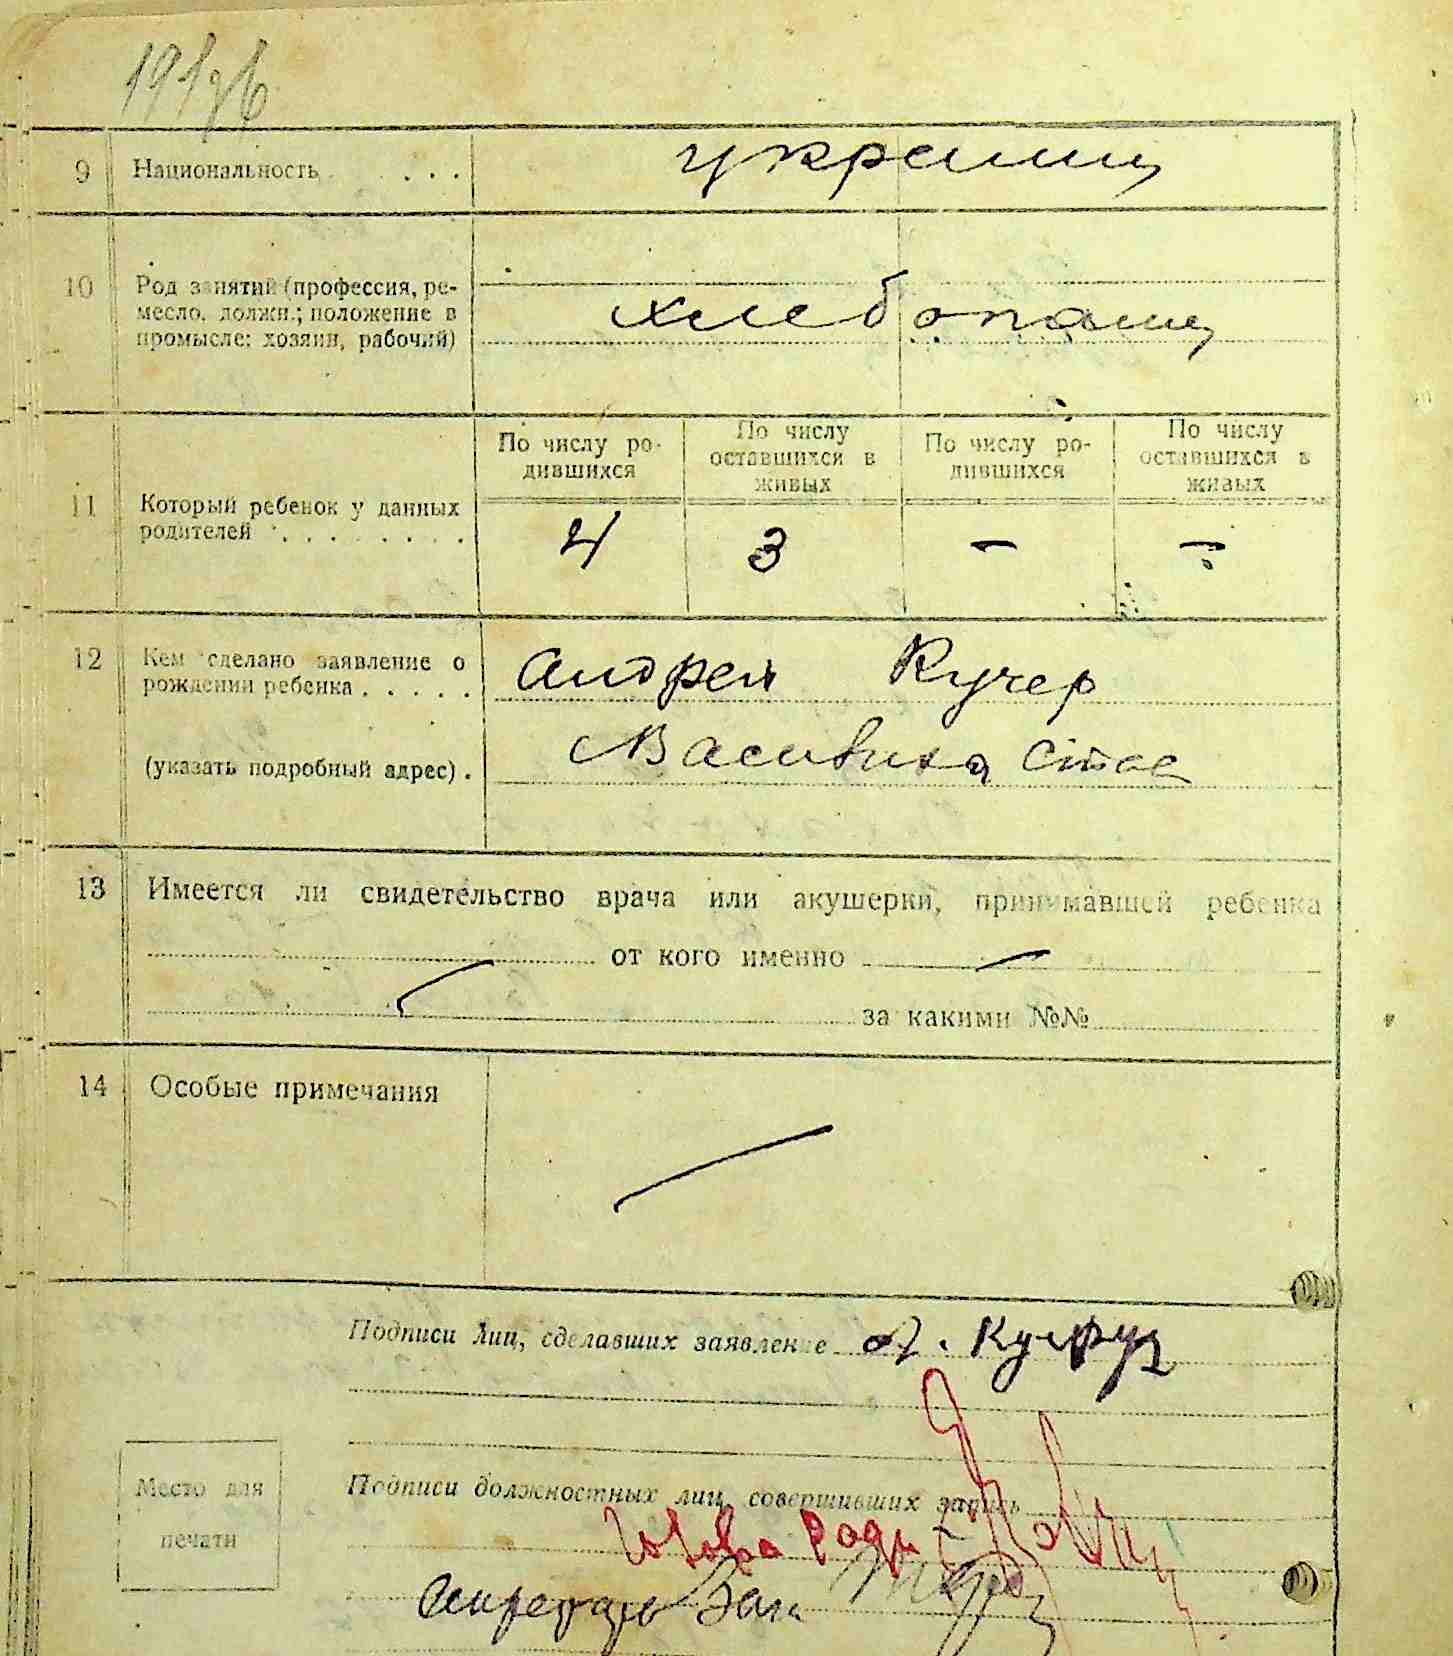 9 Национальность . . . . украинц
10 Род занятий (профессия, ре-
месло, должн.; положение в
промысле: хозяин, рабочий)
хлебопашц
По числу ро-
дившихся
По числу
оставшихся в
живых
По числу ро-
дившихся
По числу
оставшихся в
живых
11 Который ребенок у данных
родителей . . . . . . . . .
4 3 - -
12 Кем сделано заявление о
рождении ребенка . . . . .
Андрей Кучер
(указать подробный адрес) .
13 Имеется ли свидетельство врача или акушерки, принимавшей ребенка
от кого именно
за какими №№
14 Особые примечания
Подписи лиц, сделавших заявление А. Кучер
Место для
печати
Подписи должностных лиц, совершивших запись
Голова Ради
Секретарь